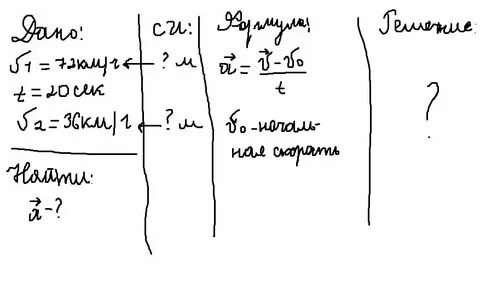 Дано:
υ1 = 72 км/ч
t = 20 сек
υ2 = 36 км/ч
Найти:
a⃗ - ?
СИ:
← ? м
← ? м
Формула:
a⃗ = (υ⃗ - υ0) / t
υ0 - началь-
ная скорать
Решение:
?